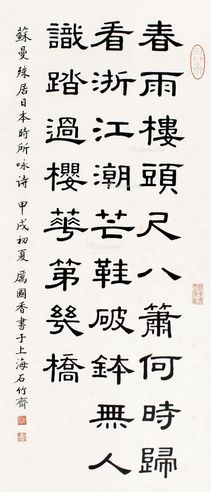 春雨樓頭尺八簫何時歸
看浙江潮芒鞋破鉢無人
識踏過櫻華第幾橋
蘇曼殊居日本時所咏诗 甲戌初夏 厲國香書于上海石竹齋